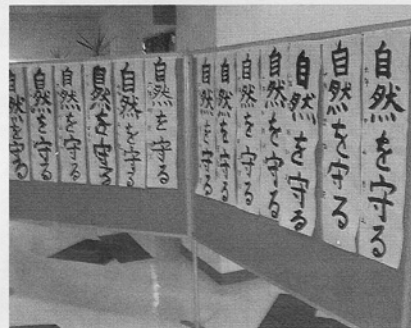 自然を守る
自然を守る
自然を守る
自然を守る
自然を守る
自然を守る
自然を守る
自然を守る
自然を守る
自然を守る
自然を守る
自然を守る
自然を守る